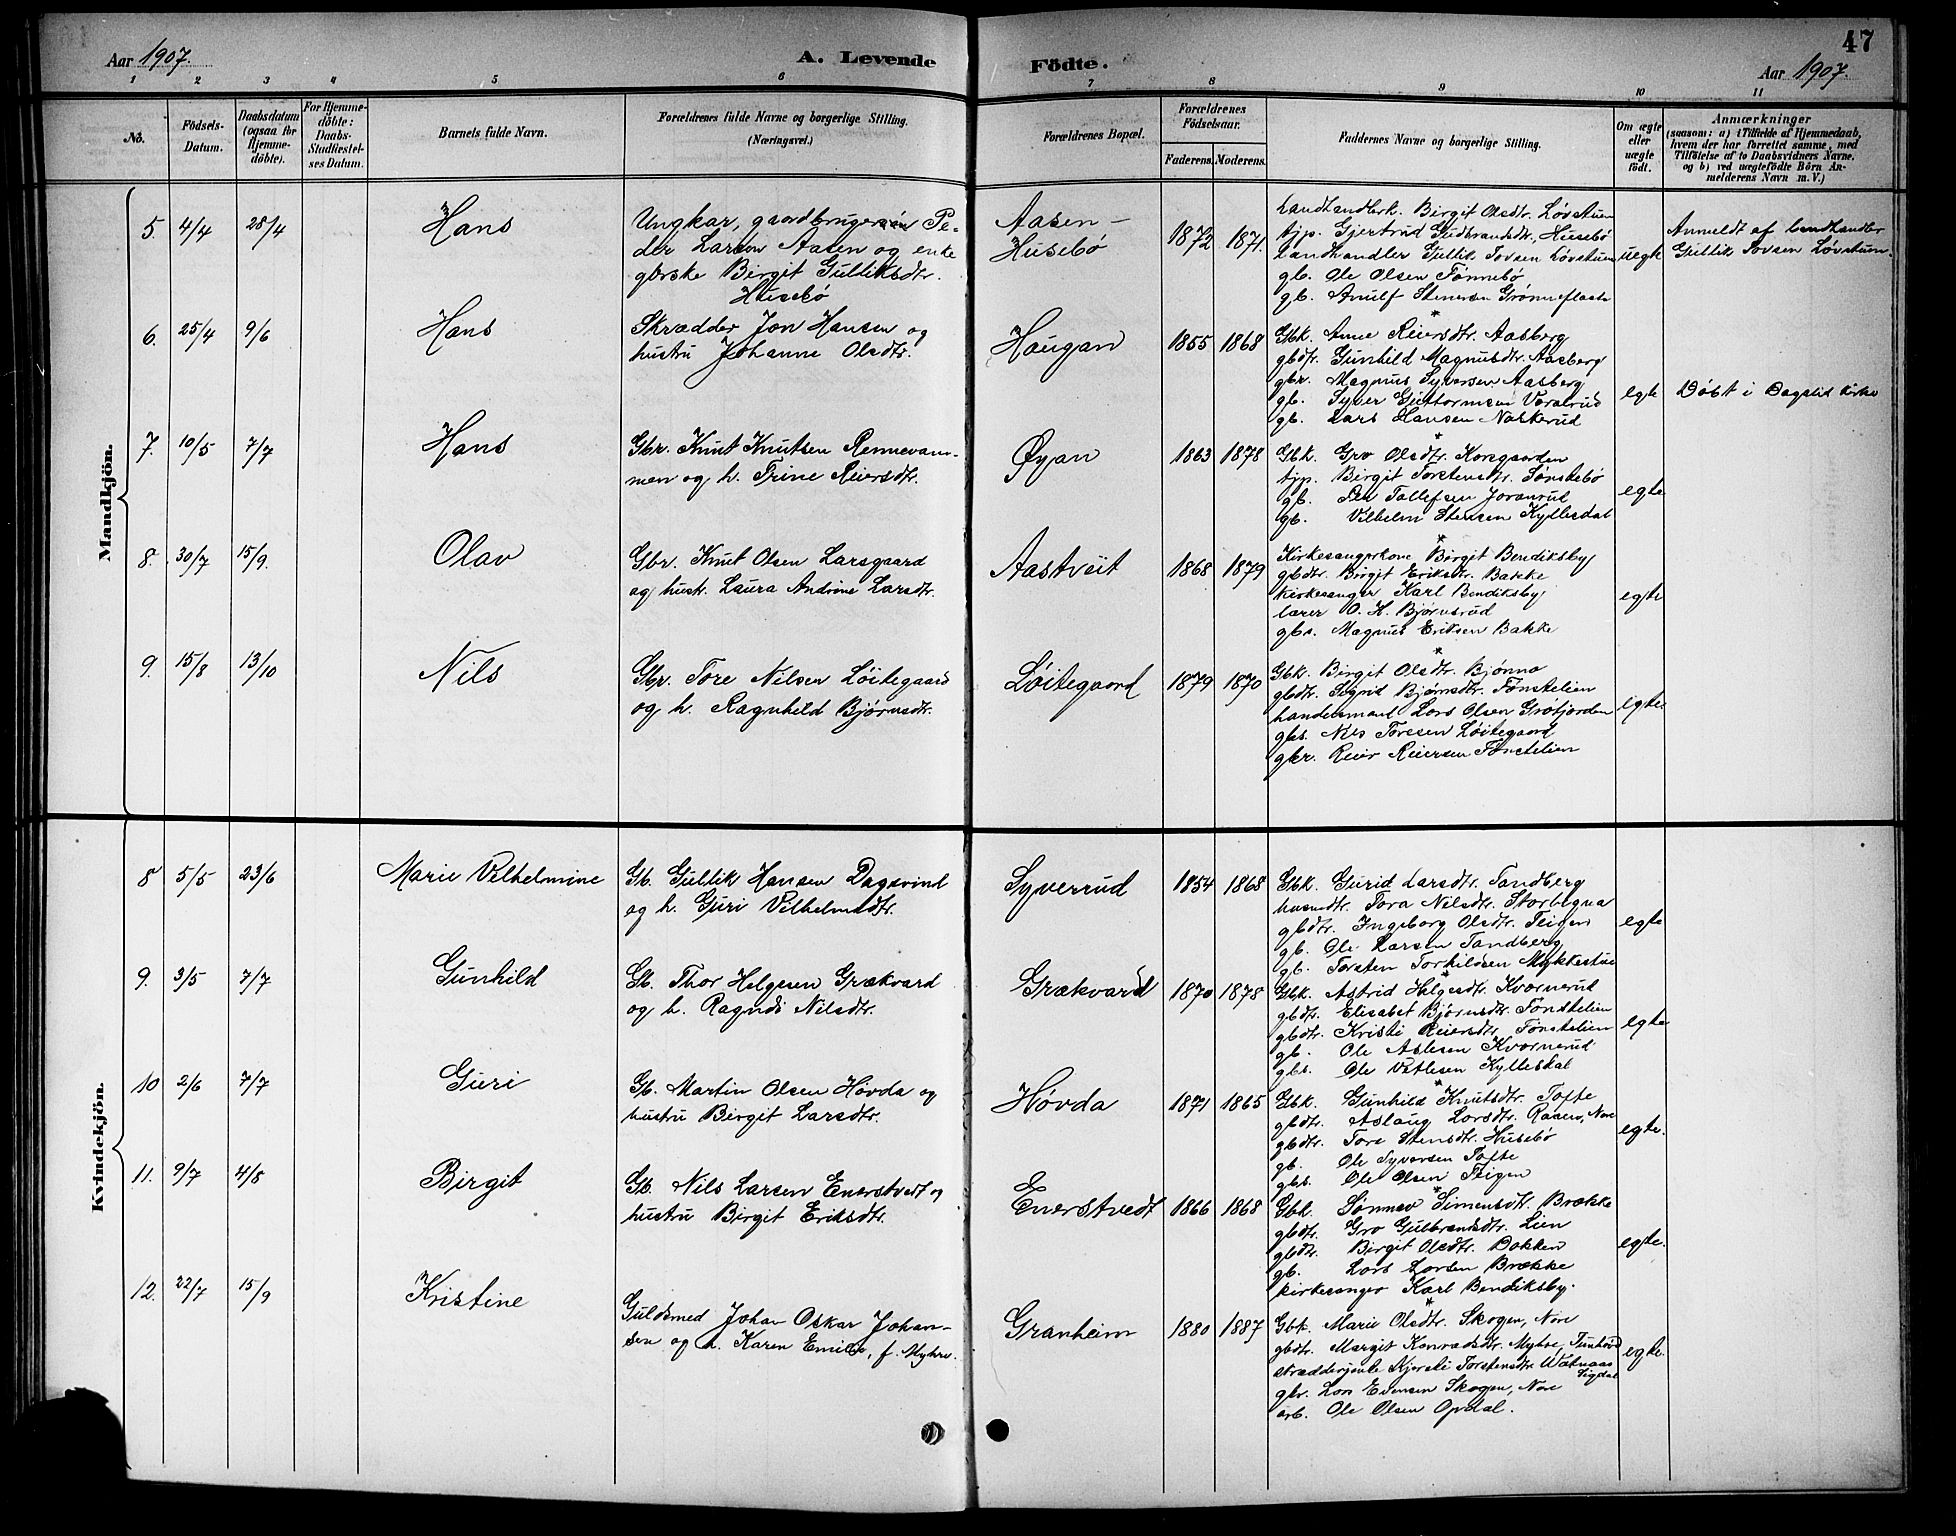 Aar 1907.
A. Levende
Fødte.
47
Aar 1907.
1 2 3 4 5 6 7 8 9 10 11
No.
Fødsels-
Datum.
Daabsdatum
(ogsaa for
Hjemme-
døbte).
For Hjemme-
døbte:
Daabs-
Stadfæstel-
ses Datum.
Barnets fulde Navn.
Forældrenes fulde Navne og borgerlige Stilling.
(Næringsvei.)
Forældrenes Bopæl.
Forældrenes
Fødselsaar.
Faderens. Moderens.
Faddernes Navne og borgerlige Stilling.
Om ægte
eller
uægte
født.
Anmærkninger
(saasom: a) i Tilfælde af Hjemmedaab,
hvem der har forrettet samme, med
Tilføielse af to Daabsvidners Navne,
og b) ved uægtefødte Børn An-
melderens Navn m. V.)
Mandkjøn.
5. 4/4 28/4 Hans
Ungkar, gaardbrugersøn Pe-
der Larsen Aasen og enke
gbrske Birgit Gulliksdtr.
Husebø
Aasen -
Husebø
1872 1871.
Landhandlerk. Birgit Olsdtr. Løvstuen
tjp. Gjertrud Gudbrandsdtr. Husebø
Landhandler Gullik Tovsen Løvstuen
gb. Ole Olsen Tønnebø
gb. Arnulf Stenersen Grønneflaata
uegte
Anmeldt af landhandler
Gullik Tovsen Løvstuen.
6. 25/4 9/6 Hans
Skrædder Jon Hansen og
hustru Johanne Olsdtr.
Haugan
1855 1868
Gbk. Anne Reiersdtr. Aasberg
gbdtr. Gunhild Magnusdtr. Aasberg
gbr. Magnus Syversen Aasberg
gb. Syver Guttormsen Varalrud
gb. Lars Hansen Naskerud
egte
Døbt i Dagalid kirke
7. 10/5 7/7 Hans
Gbr. Knut Knutsen Rennevam-
men og h. Trine Reiersdtr.
Øyan
1863 1878
Gbk. Gro Olsdtr. Korsgaarden
tjp. Birgit Torstensdtr. Sønstebø
gb. Per Tollefsen Joranrud
gb. Vilhelm Stensen Kyllesdal
egte
8. 30/7 15/9. Olav
Gbr. Knut Olsen Larsgaard
og hustr. Laura Andrine Larsdtr.
Aastveit
1868 1879
Kirkesangerkone Birgit Bendiksby
gbdtr. Birgit Eriksdtr. Bakke
kirkesanger Karl Bendiksby
lærer O. H. Bjørnsrud
gbs. Magnus Eriksen Bakke
egte
9. 15/8 13/10 Nils
Gbr. Tore Nilsen Løitegaard
og h. Ragnhild Bjørnsdtr.
Løitegaard
1879 1870
Gbk. Birgit Olsdtr. Bjønna
gbdtr. Sigrid Bjørnsdtr. Fønstelien
handelsmand Lars Olsen Grøfjorden
gbs. Nils Toresen Løitegaard
gbr. Reier Reiersen Fønstelien
egte.
Kvindekjøn.
8 5/5 23/6 Marie Vilhelmine
Gb. Gullik Hansen Dagsvind
og h. Guri Vilhelmsdtr.
Syverrud
1854 1868
Gbk. Gurid Larsdtr. Tandberg
husmdtr. Tora Nilsdtr. Storbegna
gbdtr. Ingeborg Olsdtr. Teigen
gb. Ole Larsen Tandberg
gb. Torsten Torkildsen Mykkestue
egte
9. 3/5 7/7 Gunhild
Gb. Thor Helgesen Grækvard
og h. Ragndi Nilsdtr.
Grækvard
1870 1878
Gbk. Astrid Helgesdtr. Kvarnerud
gbdtr. Elisabet Bjørnsdtr. Fønstelien
gbdtr. Kristi Reiersdtr. Fønstelien
gb. Ole Aslesen Kvarnerud
gbs. Ole Vetlesen Kyllesdal
egte
10 2/6 7/7 Guri
Gb. Martin Olsen Hovda og
hustru Birgit Larsdtr.
Hovda
1871 1865
Gbk. Gunhild Knutsdtr. Tofte
gbdtr. Aslaug Larsdtr. Raaen, Nore
gbdtr. Tore Stensdtr. Husebø
gb. Ole Syversen Tofte
gbs. Ole Olsen Teigen
egte.
11. 9/7 4/8 Birgit
Gb. Nils Larsen Enerstvedt og
hustru Birgit Eriksdtr.
Enerstvedt
1866 1868
Gbk. Sønnev Simensdtr. Brække
gbdtr. Gro Gulbrandsdtr. Lien
gbdtr. Birgit Olsdtr. Bakken
gb. Lars Larsen Brække
kirkesanger Karl Bendiksby.
egte.
12. 22/7 15/9 Kristine
Guldsmed Johan Oskar Johan-
sen og h. Karen Emilie, f. Myhre.
Granheim
1880 1887
Gbk. Marie Olsdtr. Skogen, Nore
gbdtr. Margit Konradsdtr. Myhre, Tunhøvd
skrædderjente Kjersti Torstensdtr. Watnaas
Sigdal
gbr. Lars Evensen Skogen, Nore
arb. Ole Olsen Opdal.
egte.